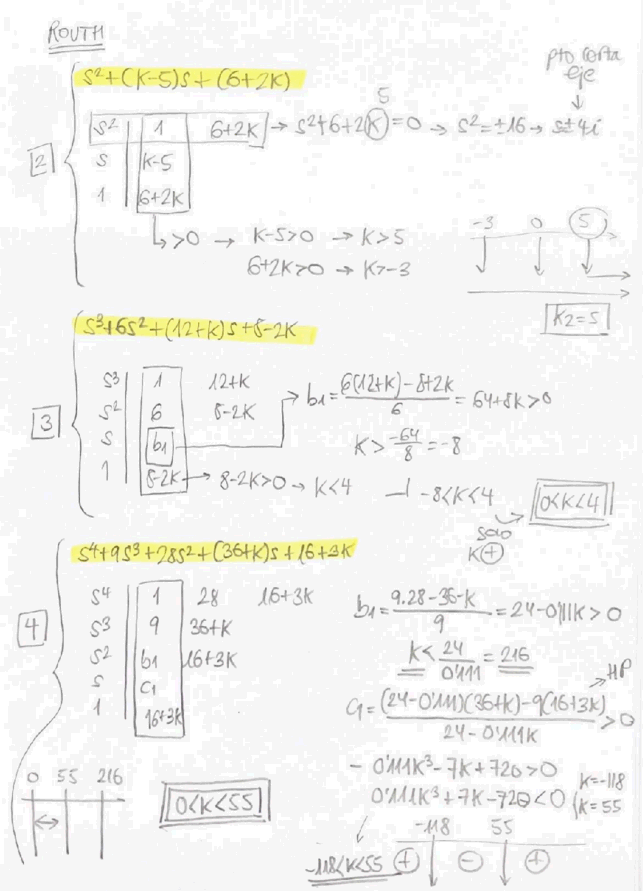 ROUTH
s²+(K-5)s+(6+2K)
pto corta
eje
2
s² | 1 6+2K → s²+6+2K=0 → s²=±16 → s±4i
5
s | K-5
1 | 6+2K
>0 → K-5>0 → K>5
6+2K>0 → K>-3
-3 0 5
K2=5
s³+6s²+(12+K)s+8-2K
3
s³ | 1 12+K
s² | 6 8-2K
s | b1
1 | 8-2K → 8-2K>0 → K<4
b1=6(12+K)-8+2K/6=64+8K>0
K>-64/8=-8
-8<K<4
0<K<4
solo
K+
s⁴+9s³+28s²+(36+K)s+16+3K
4
s⁴ | 1 28 16+3K
s³ | 9 36+K
s² | b1 16+3K
s | c1
1 | 16+3K
b1=9.28-36-K/9=24-0'111K>0
K<24/0'111=216
HP
c1=(24-0'111)(36+K)-9(16+3K)/24-0'111K>0
- 0'111K³-7K+720>0
0'111K³+7K-720<0
K=-118
K=55
0 55 216
0<K<55
-118 55
-118<K<55 + - +